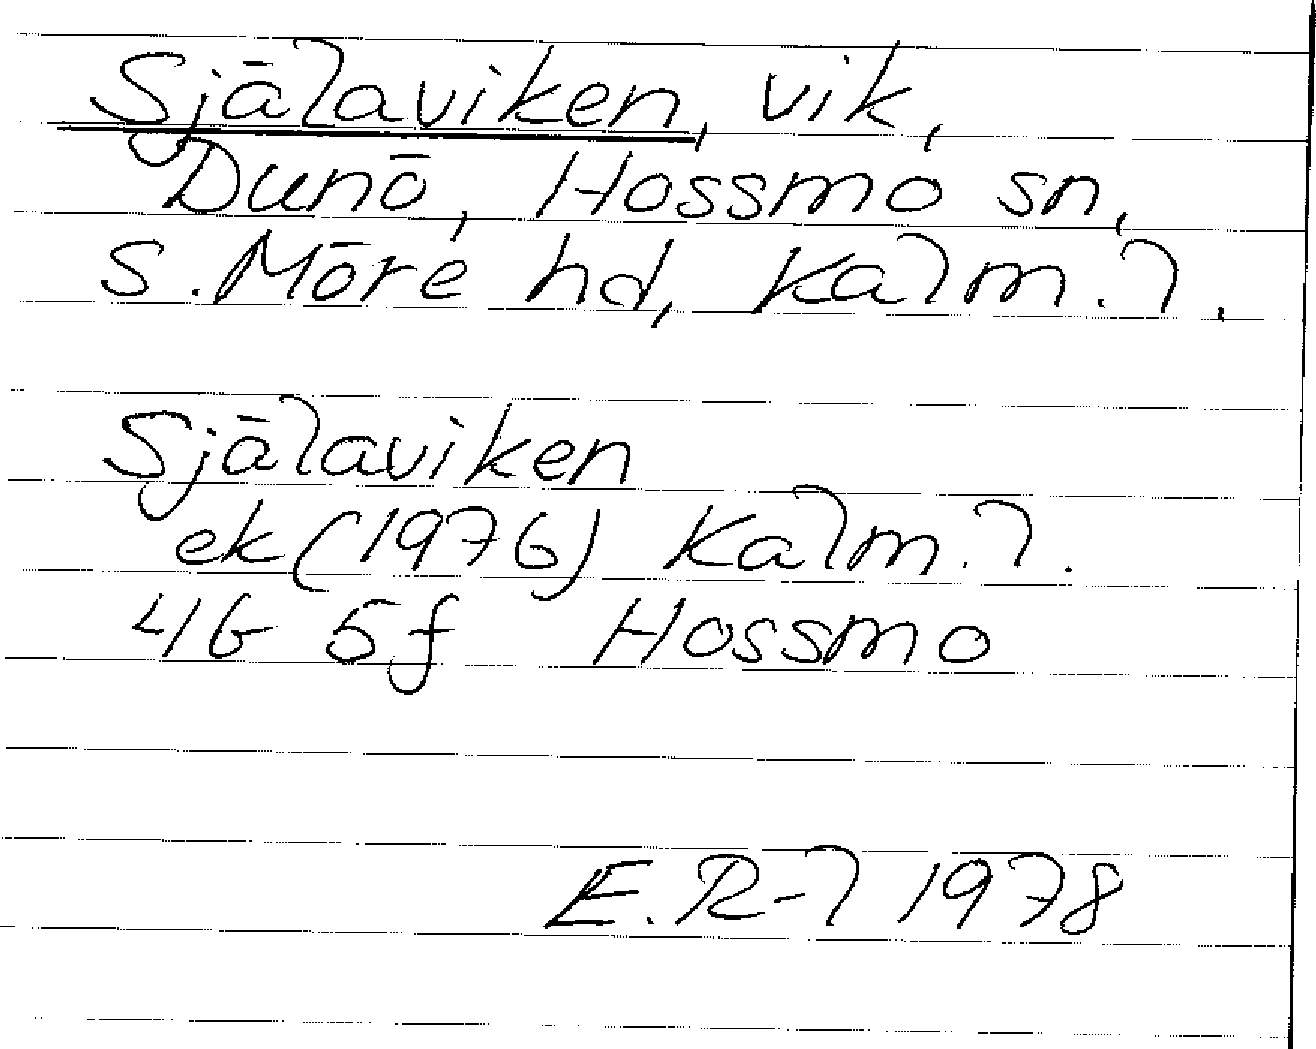 Själaviken, vik,
Dunö, Hossmo sn,
S. Möre hd, Kalm. l.,
Själaviken
ek (1976) Kalm. l.
4G 5f Hossmo
E. R-l 1978